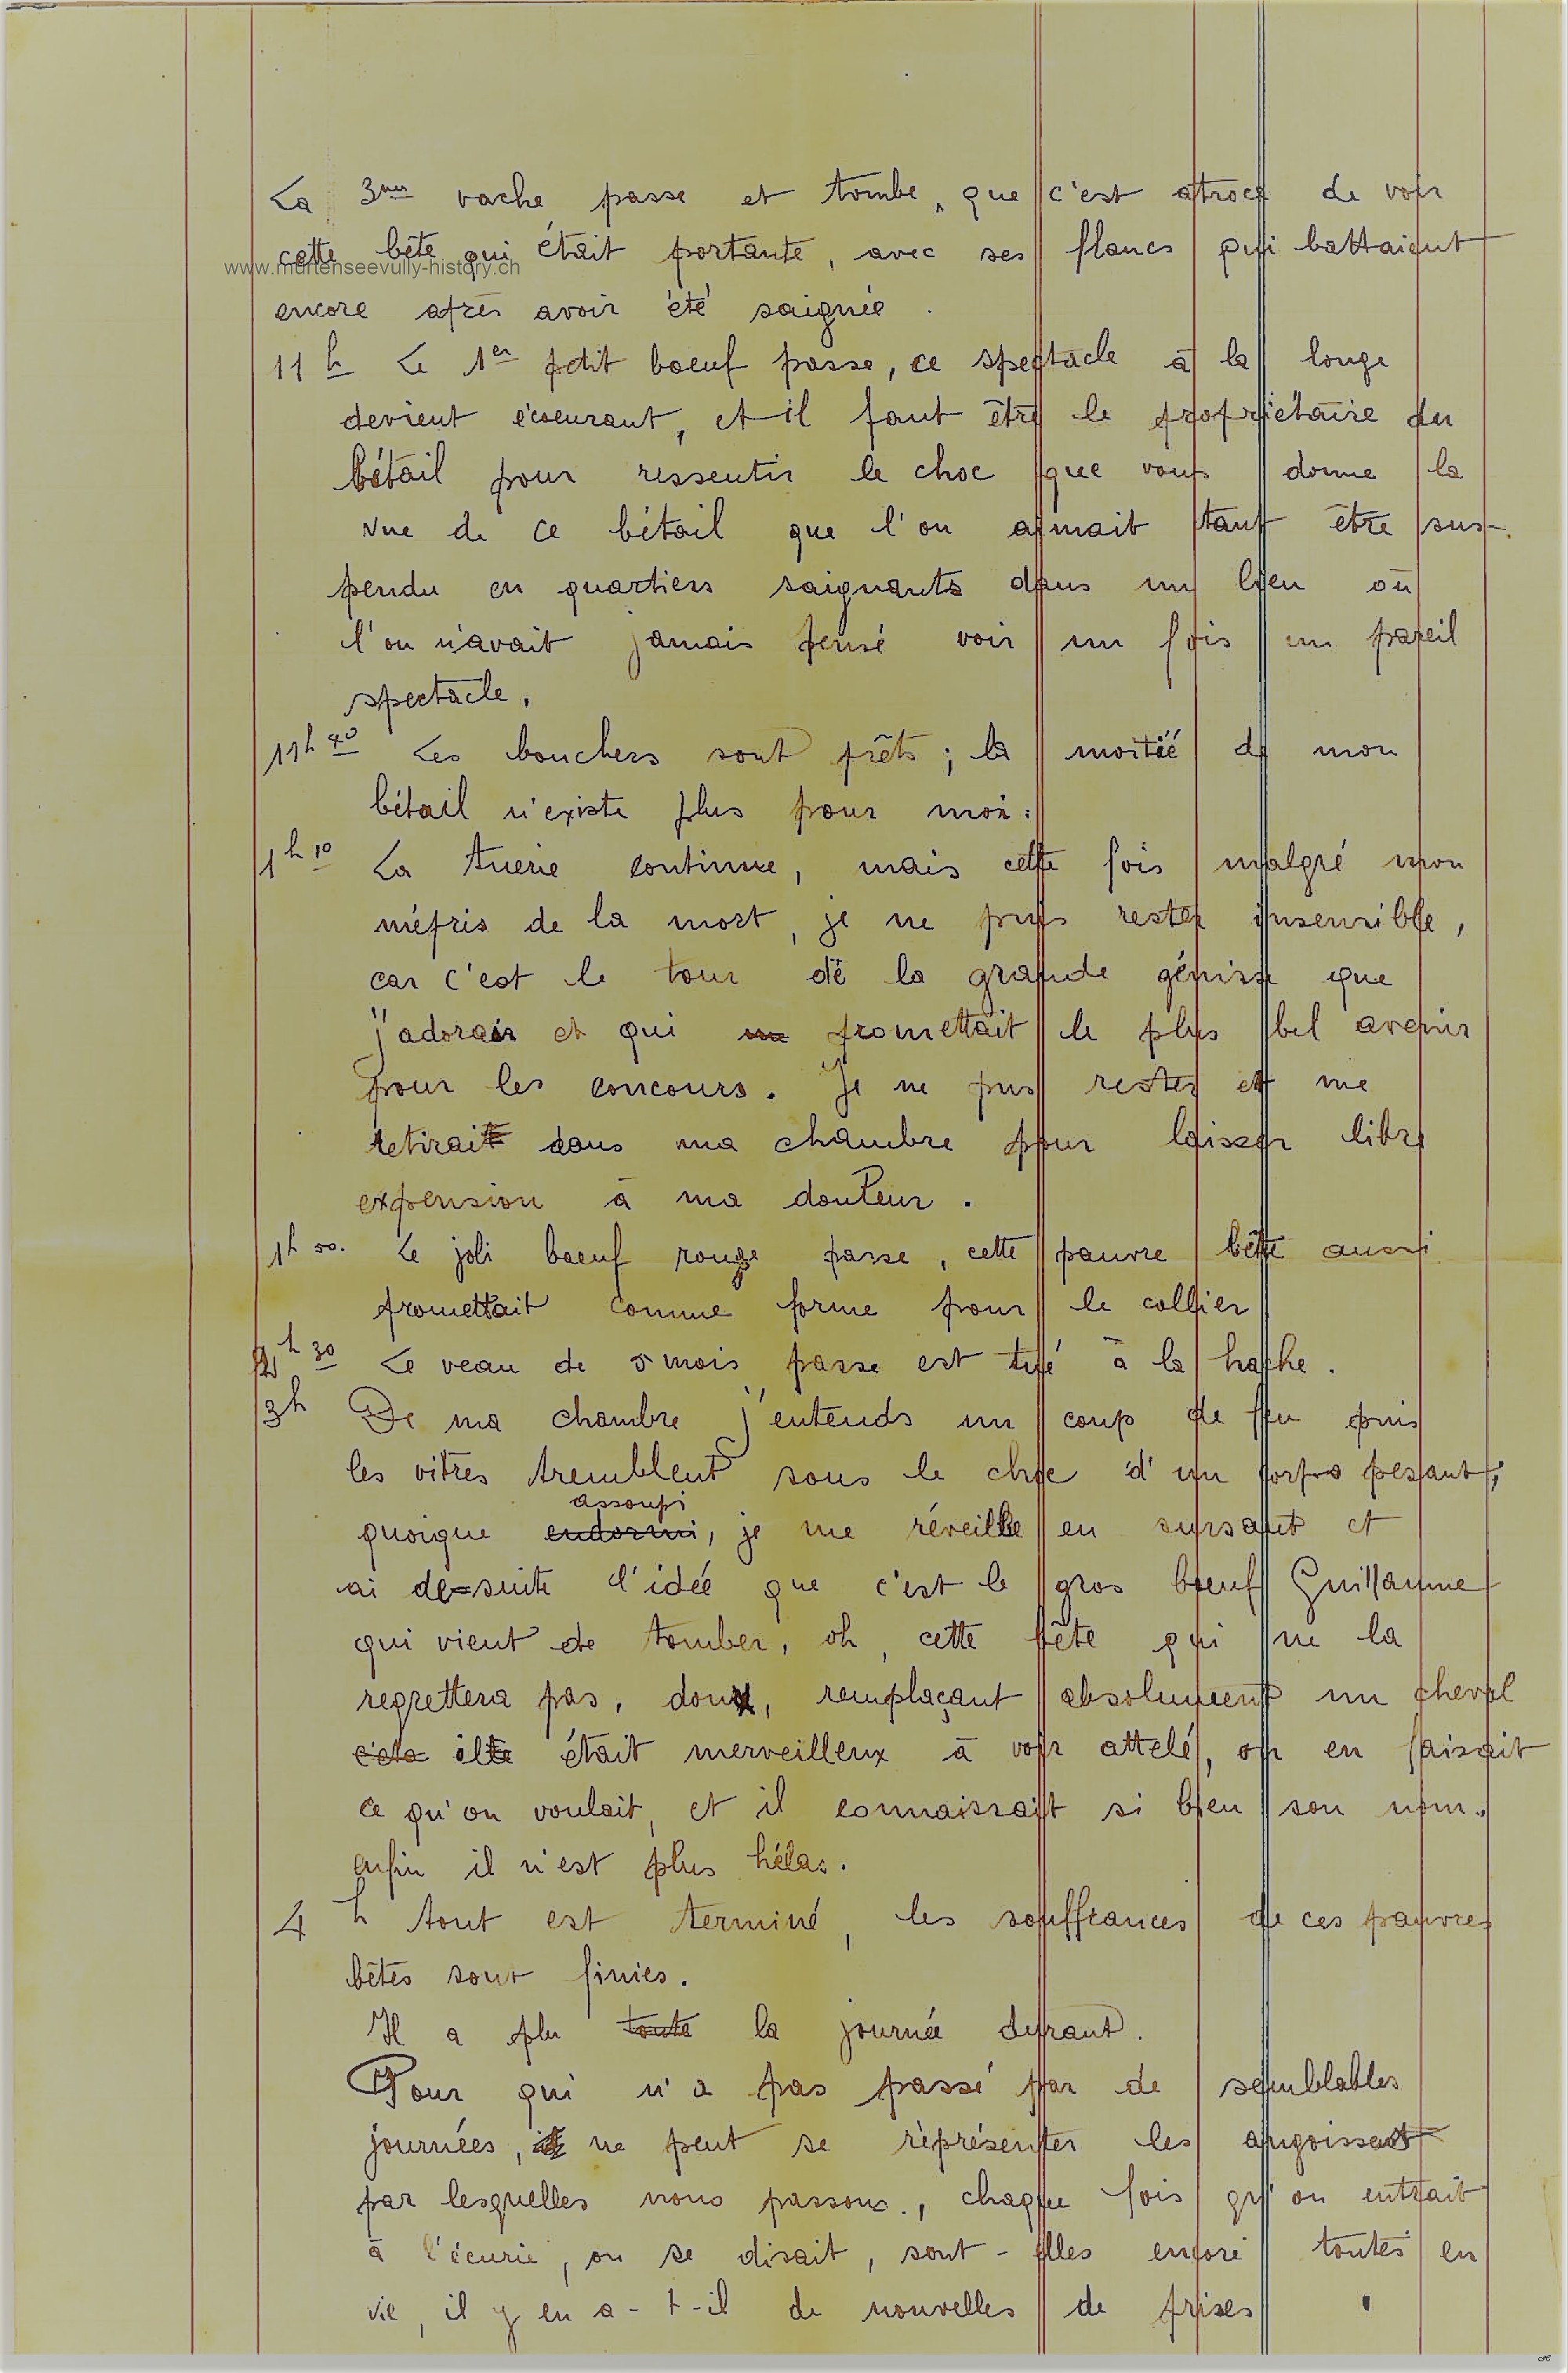 La 3me vache passe et tombe, que c'est atroce de voir
cette bête qui était portante, avec ses flancs qui battaient
www.murtenseevully-history.ch
encore après avoir été saignée.
11 h Le 1er petit boeuf passe, ce spectacle à la longe
devient écoeurant, et il faut être le propriétaire du
bétail pour ressentir le choc que vous donne la
vue de ce bétail que l'on aimait tant être sus-
pendu en quartiers saignants dans un lieu où
l'on n'avait jamais pensé voir un fois un pareil
spectacle.
11h 40 Les bouchers sont prêts; la moitié de mon
bétail n'existe plus pour moi.
1h 10 La tuerie continue, mais cette fois malgré mon
mépris de la mort, je ne puis rester insensible,
car c'est le tour de la grande génisse que
j'adorais et qui promettait le plus bel avenir
pour les concours. Je ne pus rester et me
retirait dans ma chambre pour laisser libre
expension à ma douleur.
1h 50. Le joli boeuf rouge passe, cette pauvre bête aussi
promettait comme forme pour le collier
2h 30 Le veau de 5 mois passe est tué à la hache.
3h De ma chambre j'entends un coup de feu puis
les vitres tremblent sous le choc d'un corps pesant;
assoupi
quoique endormi, je me réveille en sursaut et
ai de-suite l'idée que c'est le gros boeuf Guillaume
qui vient de tomber, oh, cette bête qui ne la
regrettera pas, doux, remplaçant absolument un cheval
il était merveilleux à voir attelé, on en faisait
ce qu'on voulait, et il connaissait si bien son nom.
enfin il n'est plus hélas.
4 h tout est terminé, les souffrances de ces pauvres
bêtes sont finies.
Il a plu toute la journée durant.
Pour qui n'a pas passé par de semblables
journées, ne peut se représenter les angoisses
par lesquelles nous passons., chaque fois qu'on entrait
à l'écurie, on se disait, sont-elles encore toutes en
vie, il y en a-t-il de nouvelles de prises